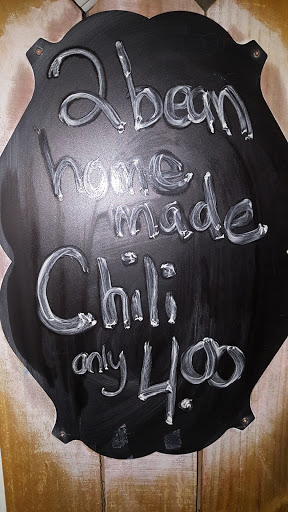 2 bean
home
made
Chili
only 4.00